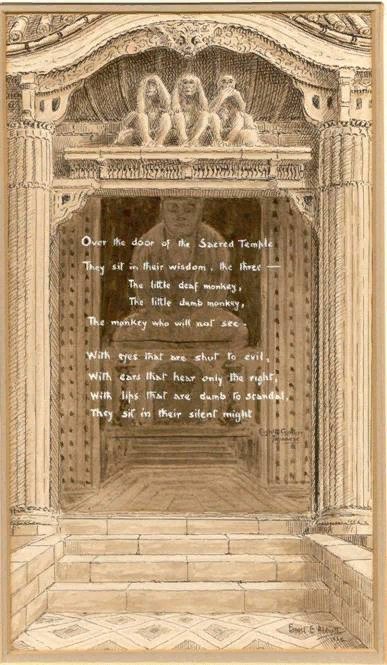 Over the door of the Sacred Temple
They sit in their wisdom, the three —
The little deaf monkey,
The little dumb monkey,
The monkey who will not see.
With eyes that are shut to evil,
With ears that hear only the right,
With lips that are dumb to scandal,
They sit in their silent might
Ernest E.